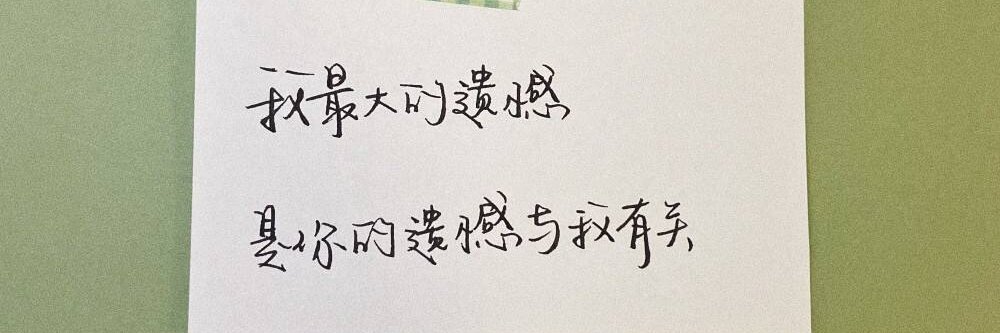 我最大的遗憾
是你的遗憾与我有关